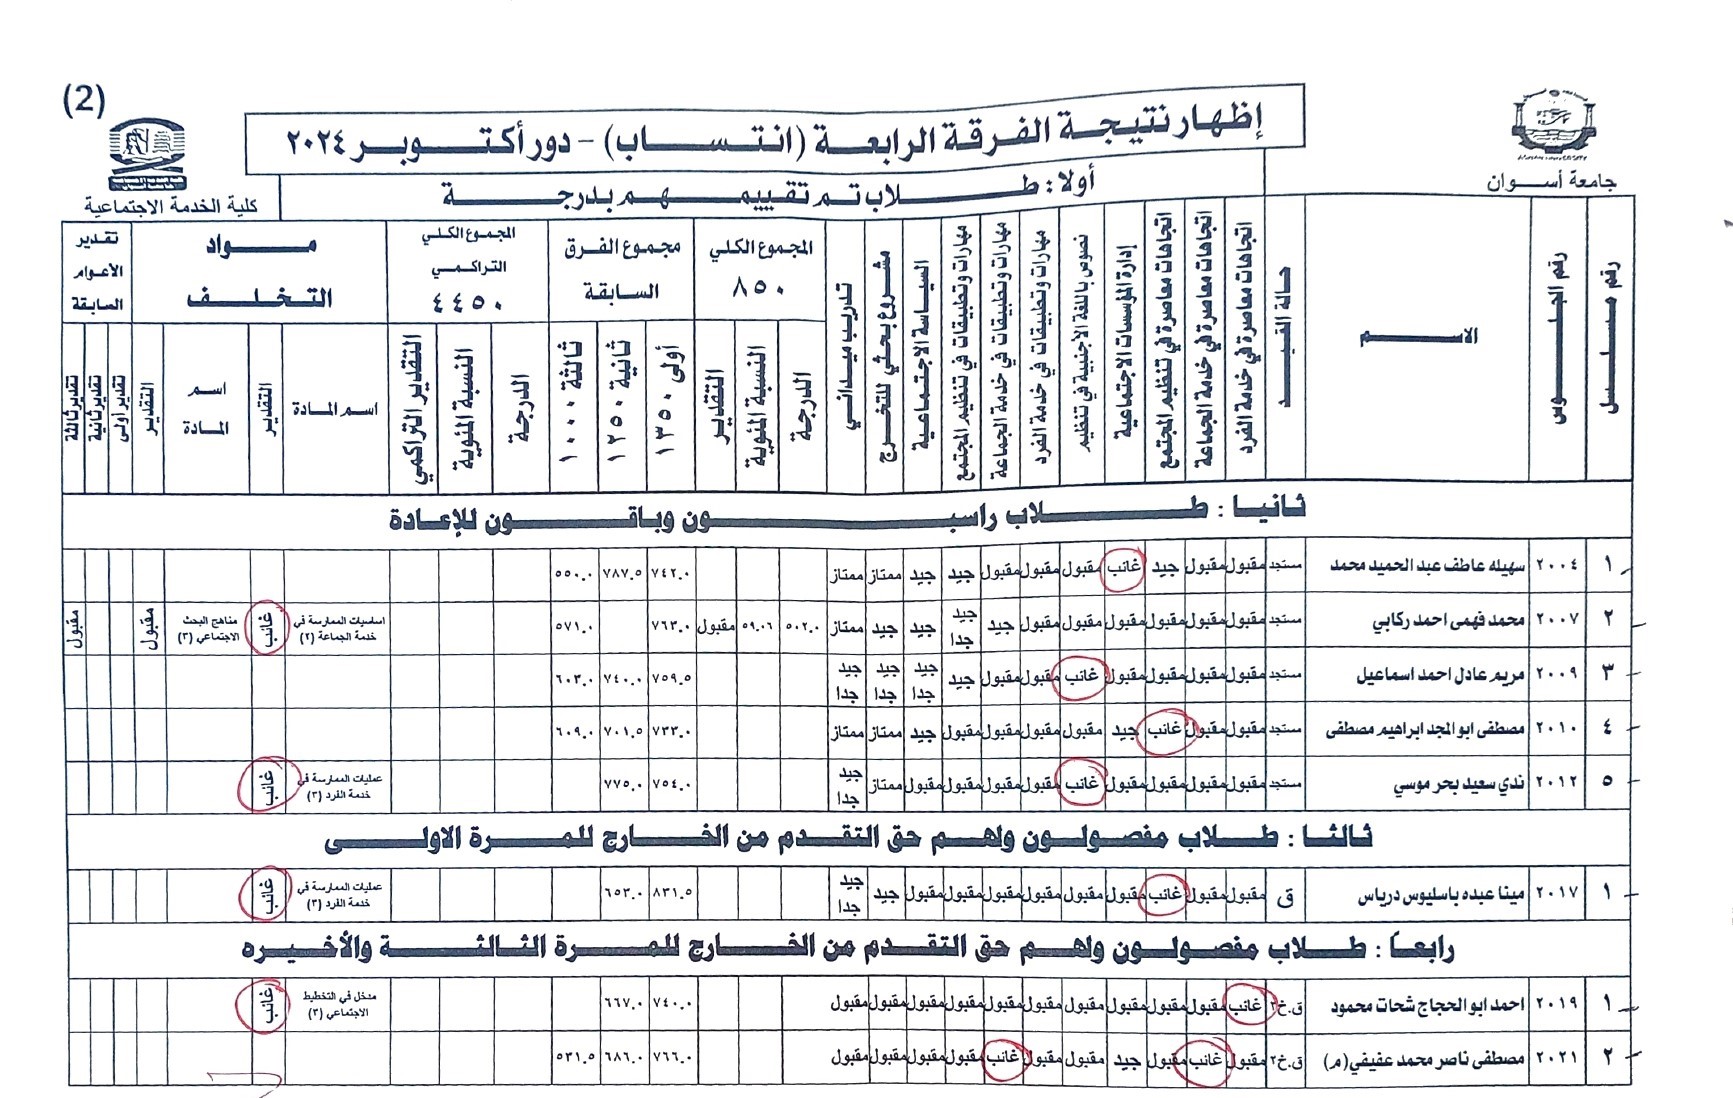 (2)
إظهار نتيجة الفرقة الرابعة (انتساب) - دور أكتوبر ٢٠٢٤
جامعة أسوان
كلية الخدمة الاجتماعية
أولا : طلاب تم تقييمهم بدرجة
رقم مسلسل
رقم الجلوس
الاسم
حالة القيد
اتجاهات معاصرة في خدمة الفرد
اتجاهات معاصرة في خدمة الجماعة
اتجاهات معاصرة في تنظيم المجتمع
إدارة المؤسسات الاجتماعية
نصوص باللغة الاجنبية في تنظيم
مهارات وتطبيقات في خدمة الفرد
مهارات وتطبيقات في خدمة الجماعة
مهارات وتطبيقات في تنظيم المجتمع
السياسة الاجتماعية
مشروع بحثي للتخرج
تدريب ميداني
المجموع الكلي ٨٥٠
الدرجة
النسبة المئوية
التقدير
مجموع الفرق السابقة
أولى ١٣٥٠
ثانية ١٢٥٠
ثالثة ١٠٠٠
المجموع الكلي التراكمي ٤٤٥٠
الدرجة
النسبة المئوية
التقدير التراكمي
مواد التخلف
اسم المادة
التقدير
اسم المادة
التقدير
تقدير الأعوام السابقة
تقدير أولى
تقدير ثانية
تقدير ثالثة
ثانيا : طلاب راسبون وباقون للإعادة
١ ٢٠٠٤ سهيله عاطف عبد الحميد محمد مستجد مقبول مقبول جيد غائب مقبول مقبول مقبول جيد جيد ممتاز ممتاز ٧٤٢.٠ ٧٨٧.٥ ٥٥٠.٠
٢ ٢٠٠٧ محمد فهمى احمد ركابي مستجد مقبول مقبول مقبول مقبول مقبول مقبول جيد جيد جدا جيد جيد ممتاز ٥٠٢.٠ ٥٩.٠٦ مقبول ٧٦٣.٠ ٥٧١.٠ اساسيات الممارسة في خدمة الجماعة (٢) غائب مناهج البحث الاجتماعي (٣) مقبول مقبول
٣ ٢٠٠٩ مريم عادل احمد اسماعيل مستجد مقبول مقبول مقبول مقبول غائب مقبول مقبول جيد جيد جدا جيد جدا جيد جدا ٧٥٩.٥ ٧٤٠.٠ ٦٠٣.٠
٤ ٢٠١٠ مصطفى ابو المجد ابراهيم مصطفى مستجد مقبول مقبول غائب جيد مقبول مقبول مقبول مقبول جيد ممتاز ممتاز ٧٣٣.٠ ٧٠١.٥ ٦٠٩.٠
٥ ٢٠١٢ ندي سعيد بحر موسي مستجد مقبول مقبول مقبول مقبول غائب مقبول مقبول مقبول مقبول ممتاز جيد جدا ٧٥٤.٠ ٧٧٥.٠ عمليات الممارسة في خدمة الفرد (٣) غائب
ثالثا : طلاب مفصولون ولهم حق التقدم من الخارج للمرة الاولى
١ ٢٠١٧ مينا عبده باسليوس درياس ق مقبول مقبول غائب مقبول مقبول مقبول مقبول مقبول مقبول جيد جيد جدا ٨٣١.٥ ٦٥٣.٠ عمليات الممارسة في خدمة الفرد (٣) غائب
رابعاً : طلاب مفصولون ولهم حق التقدم من الخارج للمرة الثالثة والأخيره
١ ٢٠١٩ احمد ابو الحجاج شحات محمود ق.خ٢ غائب مقبول مقبول مقبول مقبول مقبول مقبول مقبول مقبول مقبول مقبول ٧٤٠.٠ ٦٦٧.٠ مدخل في التخطيط الاجتماعي (٣) غائب
٢ ٢٠٢١ مصطفى ناصر محمد عفيفي (م) ق.خ٢ مقبول غائب مقبول جيد مقبول مقبول غائب مقبول مقبول مقبول مقبول ٧٦٦.٠ ٦٨٦.٠ ٥٣١.٥